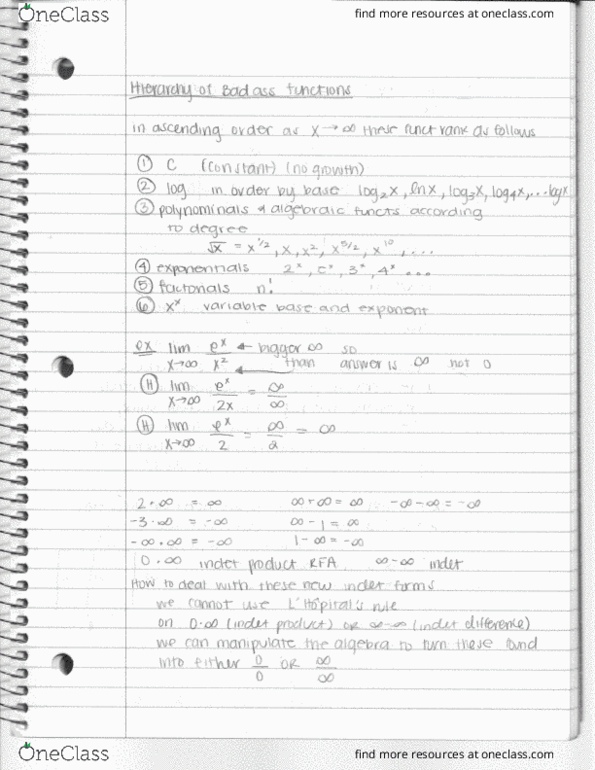 OneClass
find more resources at oneclass.com
Hierarchy of Bad ass functions
in ascending order as x→∞ these funct rank as follows
① C (constant) (no growth)
② log in order by base log₂x, lnx, log₃x, log₄x, ... logx
③ polynominals & algebraic functs according
to degree
√x = x^1/2, x, x², x^5/2, x^10, ...
④ exponentials 2ˣ, eˣ, 3ˣ, 4ˣ ...
⑤ factorials n!
⑥ xˣ variable base and exponent
ex lim x→∞ eˣ/x² ← bigger ∞ than ← so answer is ∞ not 0
Ⓗ lim x→∞ eˣ/2x = ∞/∞
Ⓗ lim x→∞ eˣ/2 = ∞/2 = ∞
2·∞ = ∞ ∞+∞ = ∞ -∞-∞ = -∞
-3·∞ = -∞ ∞-1 = ∞
-∞·∞ = -∞ 1-∞ = -∞
0·∞ indet product RFA ∞-∞ indet
How to deal with these new indet forms
we cannot use L'Hôpital's rule
on 0·∞ (indet product) OR ∞-∞ (indet difference)
we can manipulate the algebra to turn these
into either 0/0 OR ∞/∞
OneClass
find more resources at oneclass.com